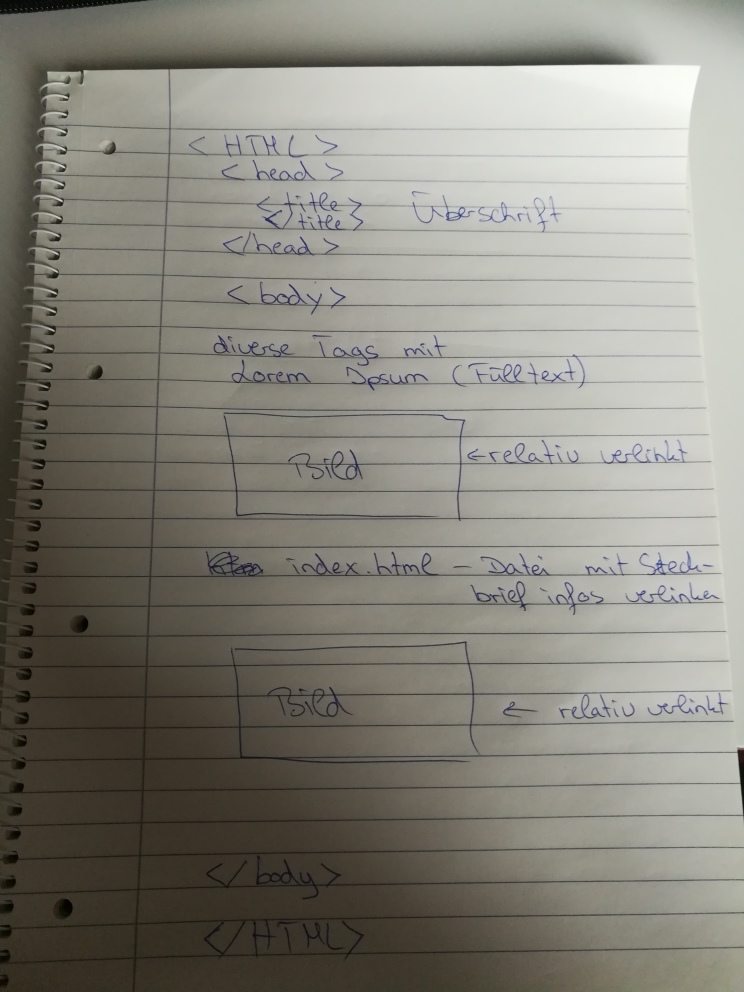 <HTML>
<head>
<title>
</title> Überschrift
</head>
<body>
diverse Tags mit
Lorem Ipsum (Fülltext)
Bild ←relativ verlinkt
index.html – Datei mit Steck-
brief infos verlinken
Bild ← relativ verlinkt
</body>
</HTML>